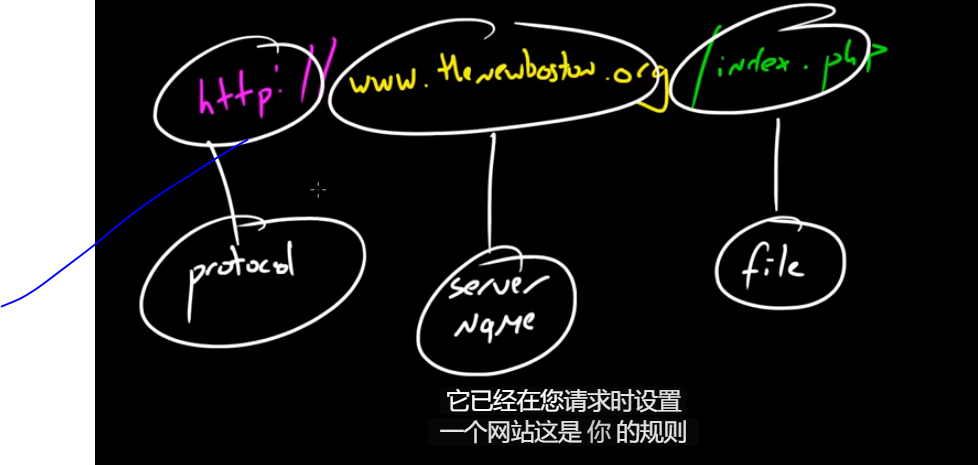 http://www.thenewboston.org/index.php
protocol
server
name
file
它已经在您请求时设置
一个网站这是 你 的规则